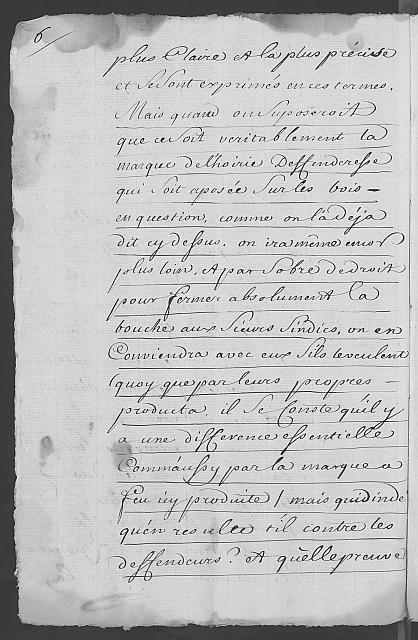 6
plus Claire et la plus précisse
et se sont exprimés en ces termes.
Mais quand on suposeroit
que ce soit veritablement la
marque de l'hoirie Deffenderesse
qui soit aposée sur les bois –
en question, comme on l'a déja
dit cy dessus. on ira même encor
plus loin, et par Sobre de droit
pour fermer absolument la
bouche aux Sieurs Sindics, on en
Conviendra avec eux s'ils le veulent
quoy que par leurs propres –
producta, il se Conste qu'il y
a une difference essentielle
Comm'aussy par la marque a
feu icy produite / mais quid inde
qu'en resulte t'il contre les
deffendeurs? et quelle preuve